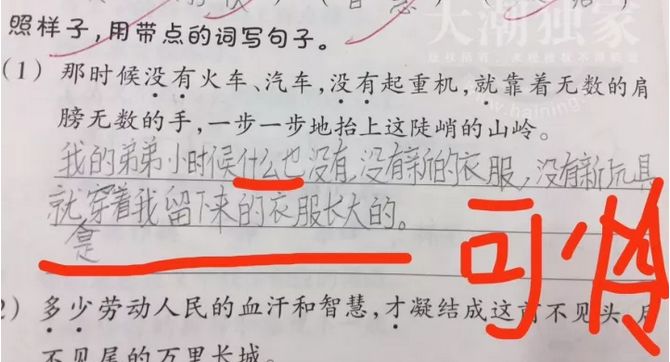 照样子，用带点的词写句子。
（1）那时候没有火车、汽车，没有起重机，就靠着无数的肩
膀无数的手，一步一步地抬上这陡峭的山岭。
我的弟弟小时候什么也没有，没有新的衣服，没有新玩具
就穿着我留下来的衣服长大的。
是
可怜
2）多少劳动人民的血汗和智慧，才凝结成这前不见头，
不见尾的万里长城。
大潮独家
www.haining.